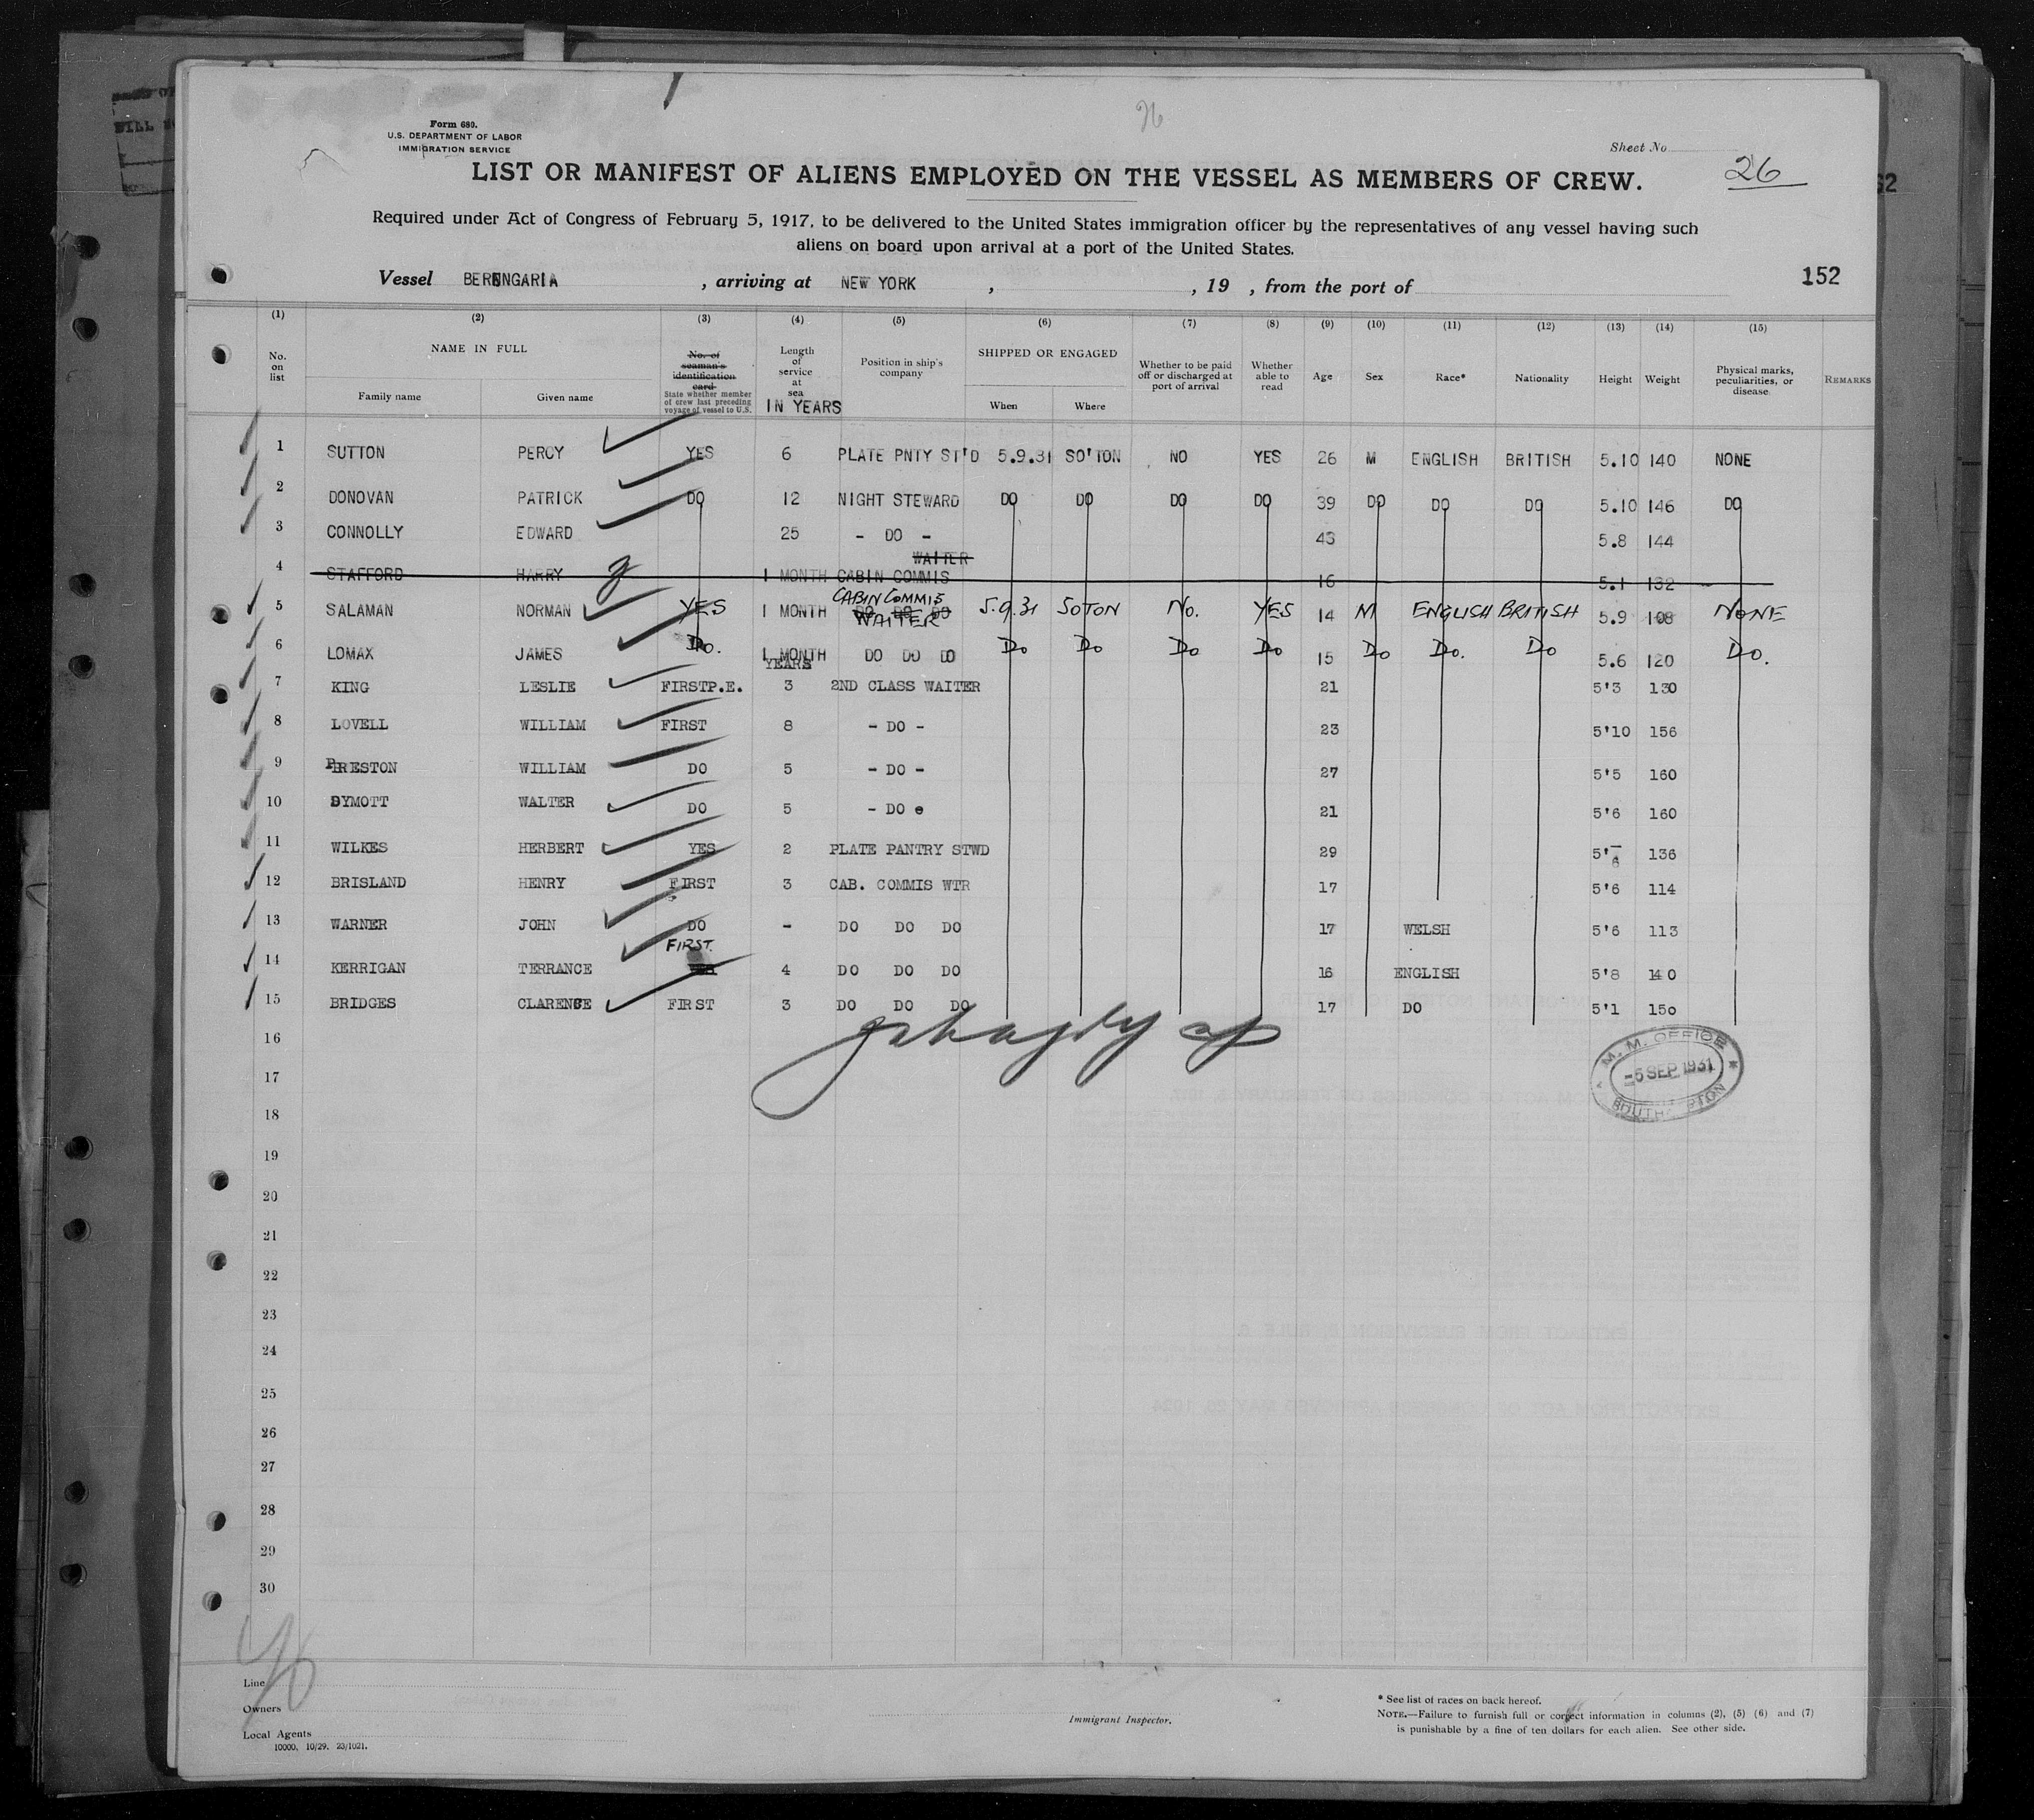 Form 680.
U.S. DEPARTMENT OF LABOR
IMMIGRATION SERVICE
Sheet No
26
LIST OR MANIFEST OF ALIENS EMPLOYED ON THE VESSEL AS MEMBERS OF CREW.
Required under Act of Congress of February 5, 1917, to be delivered to the United States immigration officer by the representatives of any vessel having such
aliens on board upon arrival at a port of the United States.
Vessel BERENGARIA , arriving at NEW YORK , , 19 , from the port of 152
(1) (2) (3) (4) (5) (6) (7) (8) (9) (10) (11) (12) (13) (14) (15)
No. on list NAME IN FULL Family name Given name No. of seaman's identification card State whether member of crew last preceding voyage of vessel to U.S. Length of service at sea IN YEARS Position in ship's company SHIPPED OR ENGAGED When Where Whether to be paid off or discharged at port of arrival Whether able to read Age Sex Race* Nationality Height Weight Physical marks, peculiarities, or disease REMARKS
1 SUTTON PERCY YES 6 PLATE PNTY ST'D 5.9.31 SO'TON NO YES 26 M ENGLISH BRITISH 5.10 140 NONE
2 DONOVAN PATRICK DO 12 NIGHT STEWARD DO DO DO DO 39 DO DO DO 5.10 146 DO
3 CONNOLLY EDWARD 25 - DO - 43 5.8 144
WAITER
4 STAFFORD HARRY 1 MONTH CABIN COMMIS 16 5.1 132
CABIN COMMIS
5 SALAMAN NORMAN YES 1 MONTH DO DO DO 5.9.31 SOTON No. YES 14 M ENGLISH BRITISH 5.9 108 NONE
WAITER
6 LOMAX JAMES Do. 1 MONTH DO DO DO Do Do Do Do 15 Do Do. Do 5.6 120 Do.
YEARS
7 KING LESLIE FIRSTP.E. 3 2ND CLASS WAITER 21 5'3 130
8 LOVELL WILLIAM FIRST 8 - DO - 23 5'10 156
9 PRESTON WILLIAM DO 5 - DO - 27 5'5 160
10 DYMOTT WALTER DO 5 - DO 21 5'6 160
11 WILKES HERBERT YES 2 PLATE PANTRY STWD 29 5' 136
12 BRISLAND HENRY FIRST 3 CAB. COMMIS WTR 17 5'6 114
13 WARNER JOHN DO - DO DO DO 17 WELSH 5'6 113
FIRST.
14 KERRIGAN TERRANCE 4 DO DO DO 16 ENGLISH 5'8 140
15 BRIDGES CLARENCE FIRST 3 DO DO DO 17 DO 5'1 150
16
M. M. OFFICE
-5 SEP 1931
17
18
19
20
21
22
23
24
25
26
27
28
29
30
Line
Owners
Local Agents
10000, 10/29. 23/1021.
Immigrant Inspector.
* See list of races on back hereof.
NOTE.—Failure to furnish full or correct information in columns (2), (5) (6) and (7)
is punishable by a fine of ten dollars for each alien. See other side.